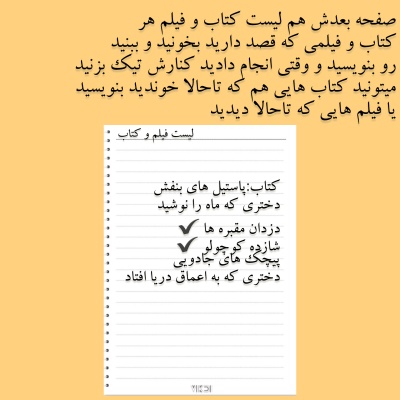 صفحه بعدش هم لیست کتاب و فیلم هر
کتاب و فیلمی که قصد دارید بخونید و ببنید
رو بنویسید و وقتی انجام دادید کنارش تیک بزنید
میتونید کتاب هایی هم که تاحالا خوندید بنویسید
یا فیلم هایی که تاحالا دیدید
لیست فیلم و کتاب
کتاب:پاستیل های بنفش
دختری که ماه را نوشید
دزدان مقبره ها ✔
شازده کوچولو ✔
پیچک های جادویی
دختری که به اعماق دریا افتاد